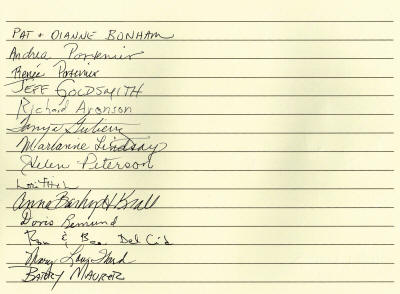 PAT + DIANNE BONHAM
Andrea Portenier
Renée Portenier
JEFF GOLDSMITH
Richard Aronson
Tanya Gutierrez
Marianne Lindsay
Helen Peterson
Anne Barky Krall
Doris Bemund
Ron & Bea Del Cid
Nancy
BARRY MAURER